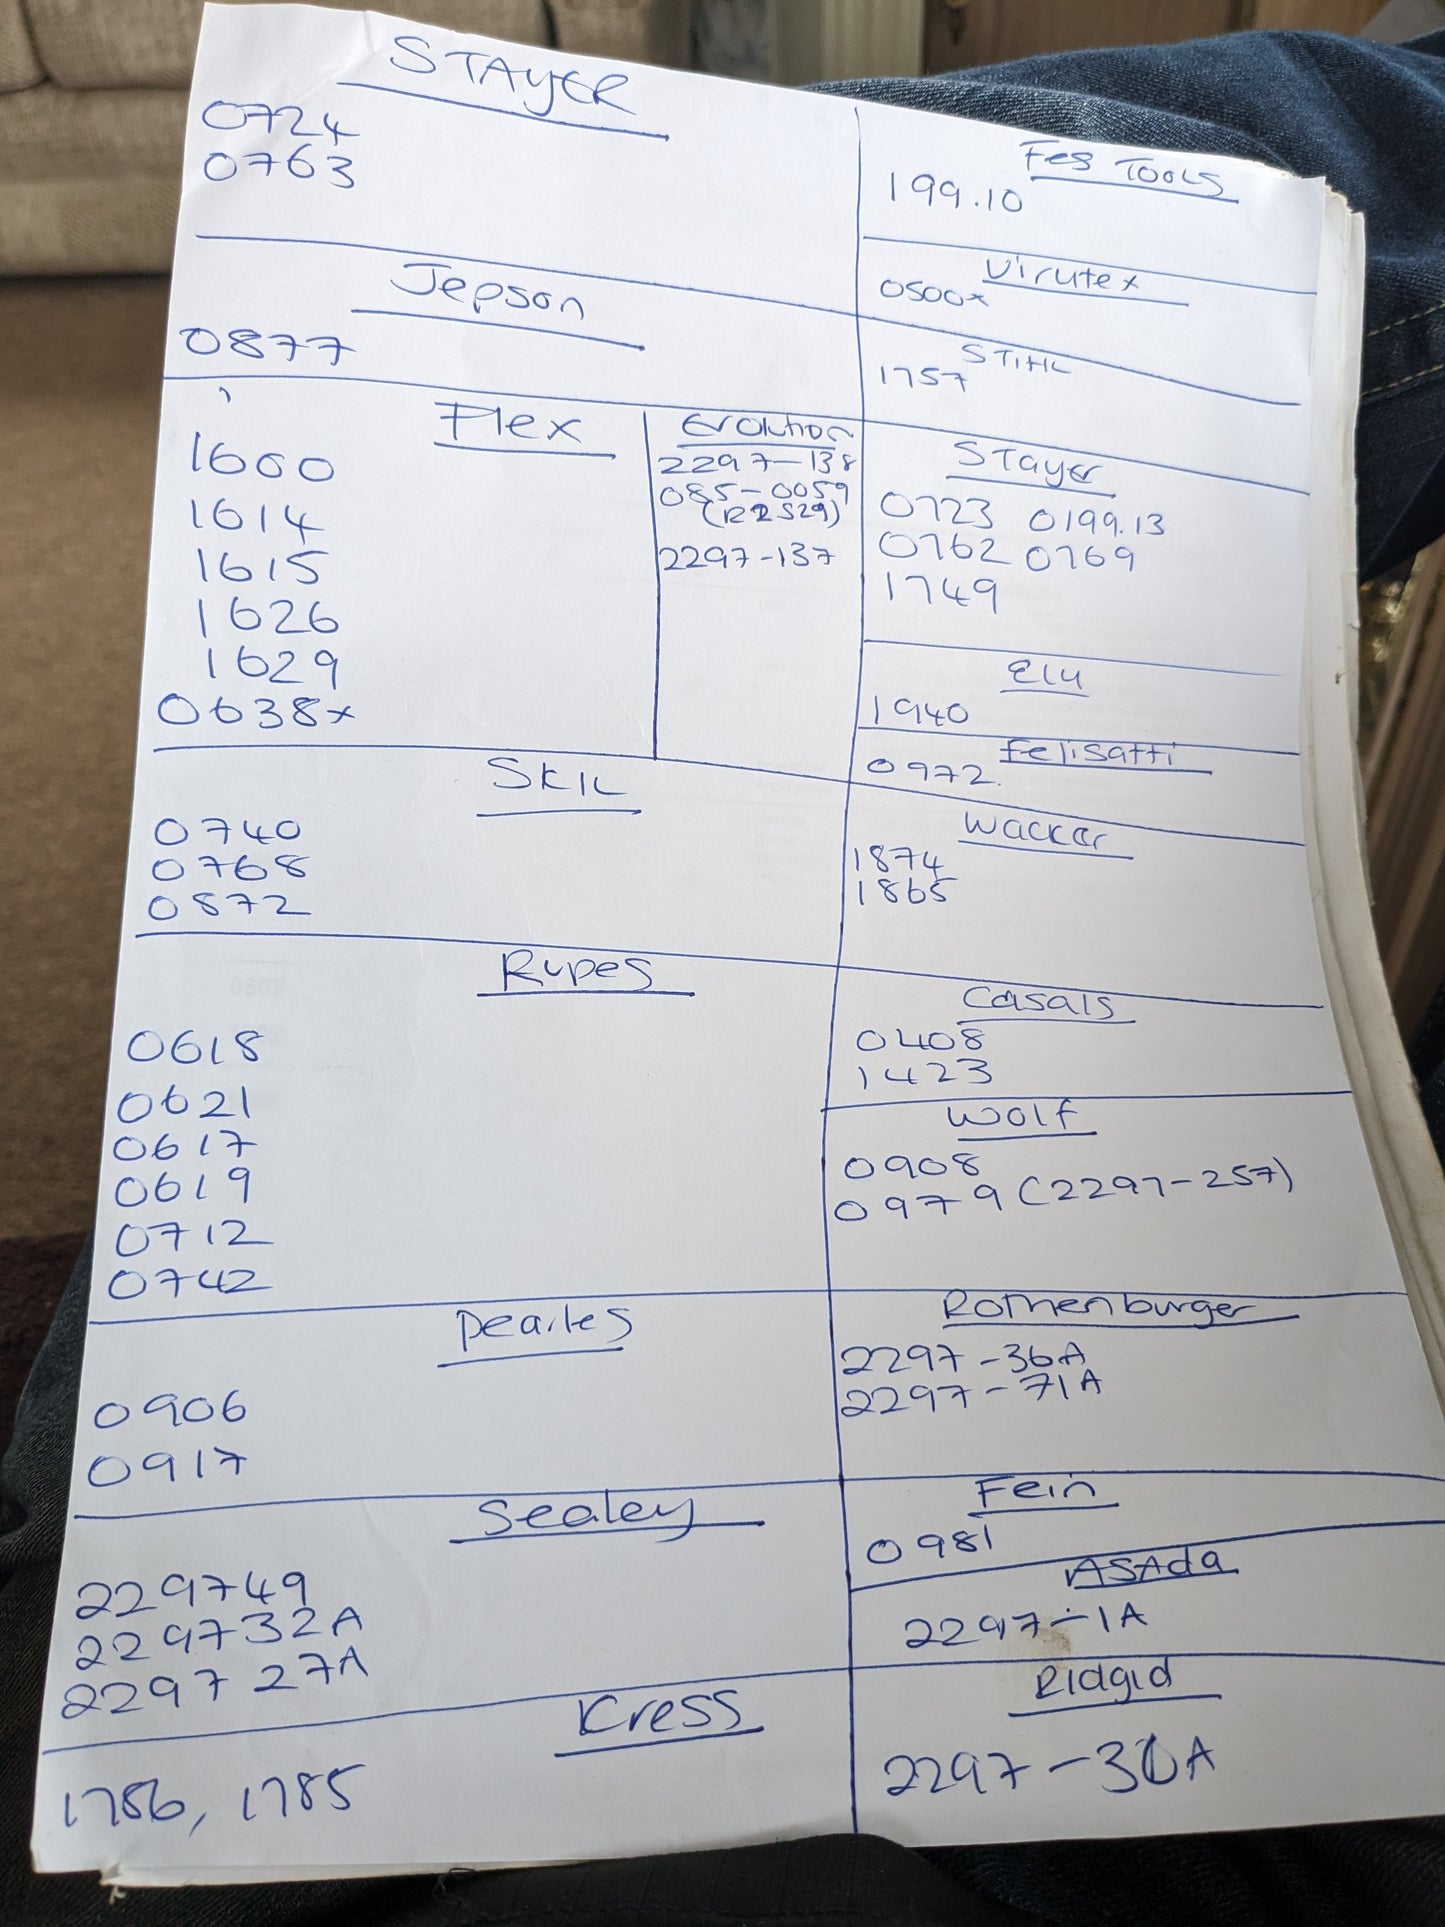 STAYER
0724
0763
Jepson
0877
Flex
1600
1614
1615
1626
1629
0638x
Evolution
2297-138
085-0059
(R2S29)
2297-137
SKIL
0740
0768
0872
Rupes
0618
0621
0617
0619
0712
0742
Pearles
0906
0917
Sealey
229749
229732A
2297 27A
Kress
1786, 1785
Fes TOOLS
199.10
Virutex
0500x
STIHL
1757
STayer
0723 0199.13
0762 0769
1749
Elu
1940
Felisatti
0972.
Wacker
1874
1865
Casals
0408
1423
Wolf
0908
0979 (2297-257)
Rothenburger
2297-36A
2297-71A
Fein
0981
ASAda
2297-1A
Ridgid
2297-30A